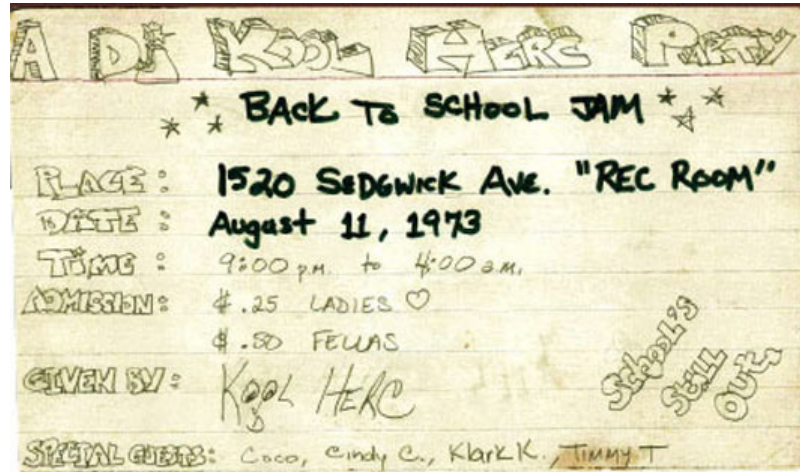 A DJ KOOL HERC PARTY
BACK TO SCHOOL JAM
PLACE: 1520 SEDGWICK AVE. "REC ROOM"
DATE: August 11, 1973
TIME: 9:00 p.m. to 4:00 a.m.
ADMISSION: $.25 LADIES ♡
$.50 FELLAS
GIVEN BY: KOOL HERC
SPECIAL GUESTS: Coco, Cindy C., Klark K., TIMMY T
School's
Still
Out